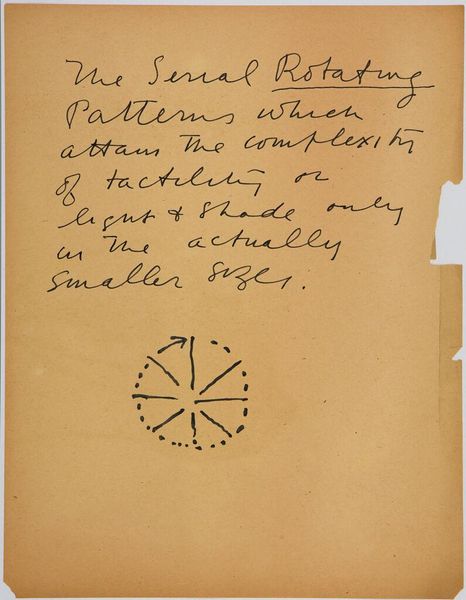 The Serial Rotating
Patterns which
attain the complexity
of tactility or
light & shade only
in the actually
smaller sizes.